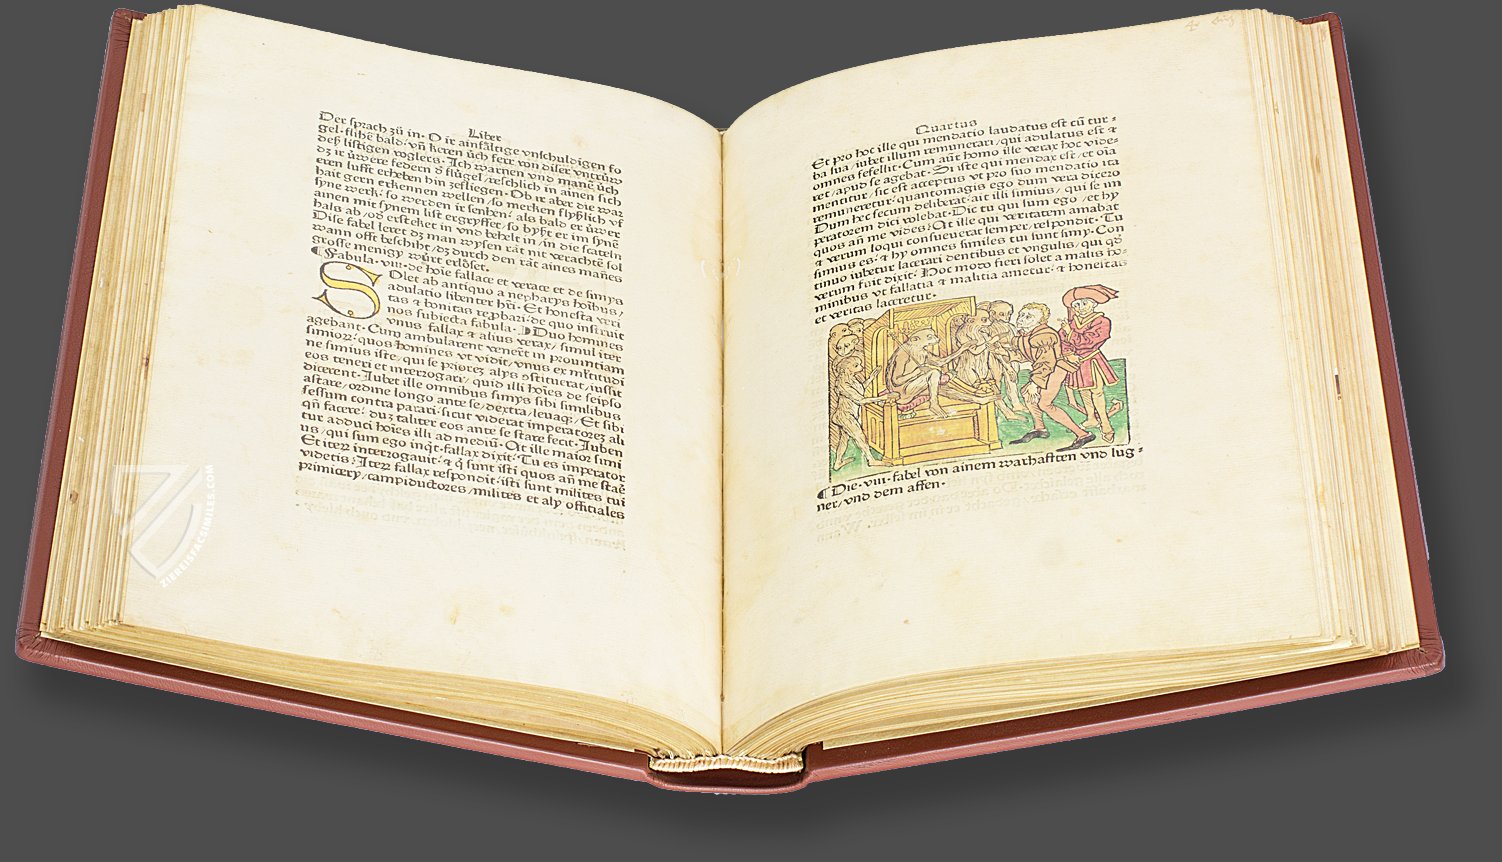 Liber
Der sprach zů in· O ir ainfältige vnschuldigen fo
gel· flihẽ bald· vñ keren ůch ferr von diser vntrůw
deß listigen voglers· Ich warnen vnd manẽ ůch
dz ir ůwere federn vñ flügel /reschlich in ainen sich
eren lufft erheben hin zefliegen· Ob ir aber die war
hait gern erkennen wellen / so merken slyßlich vf
syne werk· so werden ir senhen· als bald er ůwer
ainen mit synem list ergryffet / so hyßt er im synẽ
hals ab / od ersteket in vnd behelt in / in die scateln
Dise fabel leret dz man wysen rät nit verachtẽ sol
wann offt beschiht / dz durch den rät aines mañes
grosse menigy wůrt erlöset·
Fabula· viii· de hoĩe fallace et verace et de simys
SOlet ab antiquo a nepharys hoĩbus /
adulatio libenter hr̃i· Et honesta veri
tas & bonitas rep̱hari· de quo instruit
nos subiecta fabula· Duo homines
vnus fallax & alius verax / simul iter
agebant· Cum ambularent venert̃ in prouintiam
simiorꝝ· quos hoĩmines vt vidit / vnus ex ml̃titudi
ne simius iste / qui se priorẽ alys ɔstituerat / iussit
eos teneri et interrogari / quid illi hoĩes de seipso
dicerent· Jubet ille omnibus simys sibi similibus
astare / ordine longo ante se / dextra / leuaqꝫ / Et sibi
sessum contra parari· sicut viderat imperatorẽ ali
qñ facere· duz taliter eos ante se stare fecit· Juben
tur adduci hoĩes illi ad mediũ· At ille maior simi
us / qui sum ego inq̃t· fallax dixit· Tu es imperator
Et iterꝝ interrogauit· & q̃ sunt isti quos añ me staẽ
videtis· Iterꝝ fallax respondit· isti sunt milites tui
primicery / campiductores / milites et aly officiales
Quartus
Et pro hoc ille qui mendatio laudatus est cũ tur⸗
ba sua / iubet illum remunerari / qui adulatus est &
omnes fefellit· Cum aũt homo ille verax hoc vide⸗
ret / apud se agebat· Si iste qui mendax est / et oĩa
mentitur / sic est acceptus vt pro suo mendatio ita
remuneretur· quantomagis ego dum vera dicero
Dum hec secum deliberat· ait illi simius / qui se im
peratorem dici volebat· Dic tu qui sum ego / et hy
quos añ me vides· At ille qui veritatem amabat
& verum loqui consueuerat semper / respondit· Tu
simius es· & hy omnes similes tui sunt simy· Con
tinuo iubetur lacerari dentibus et vngulis / qui qd̃
verum fuit dixit· Hoc modo fieri solet a malis ho⸗
minibus vt fallatia & malitia ametur· & honestas
et veritas laceretur·
Die· viii· fabel von ainem warhafften vnd lug⸗
ner / vnd dem affen·
ZIEREISFACSIMILES.COM